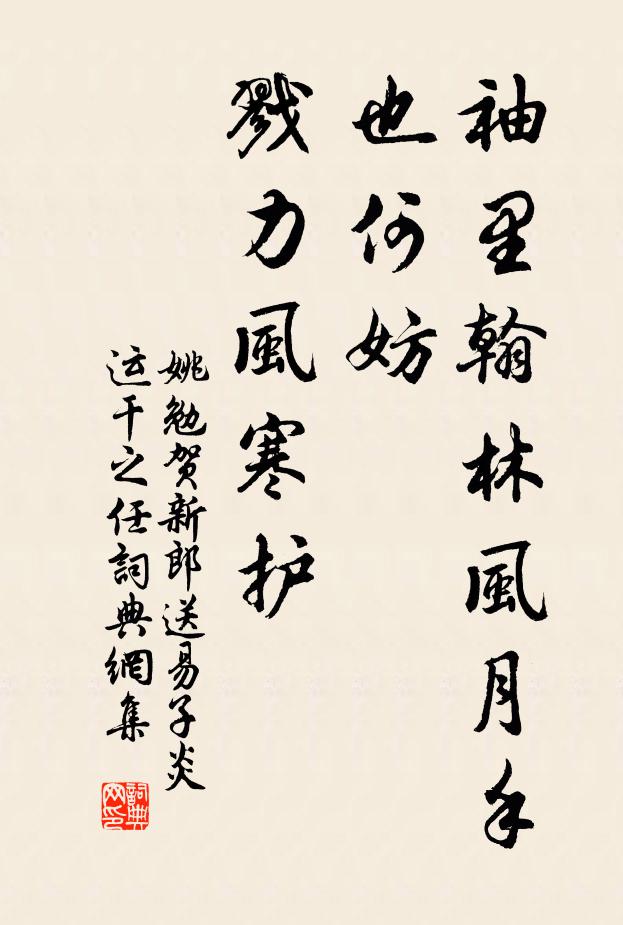 袖里翰林風月手
也何妨
戮力風寒护
姚勉贺新郎送易子炎
运干之任詞典網集
詞典网印